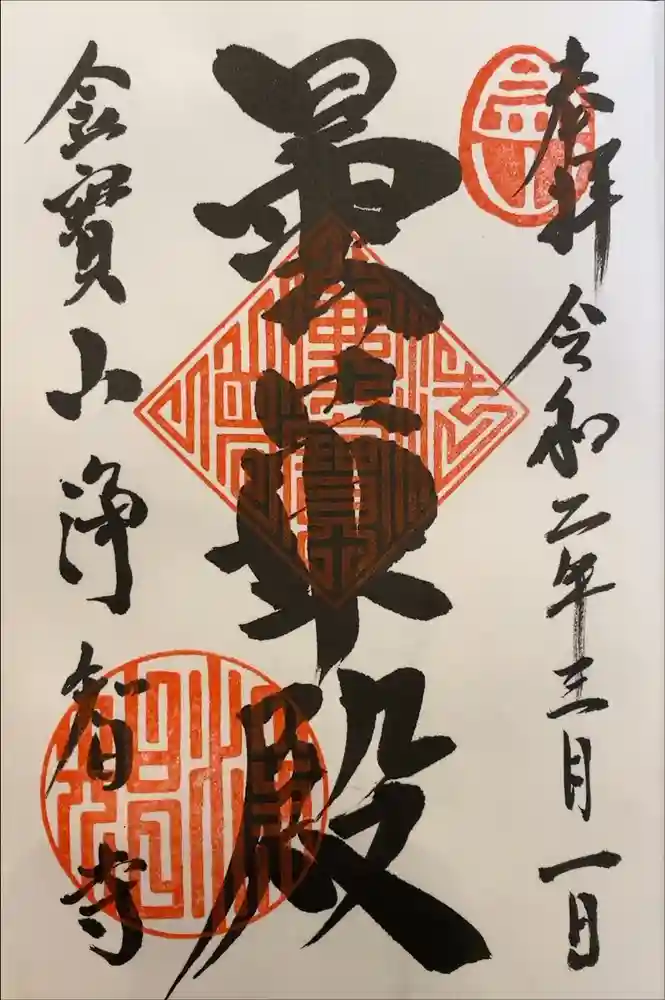 奉拝 令和二年三月一日
曇華殿
金寶山 浄智寺